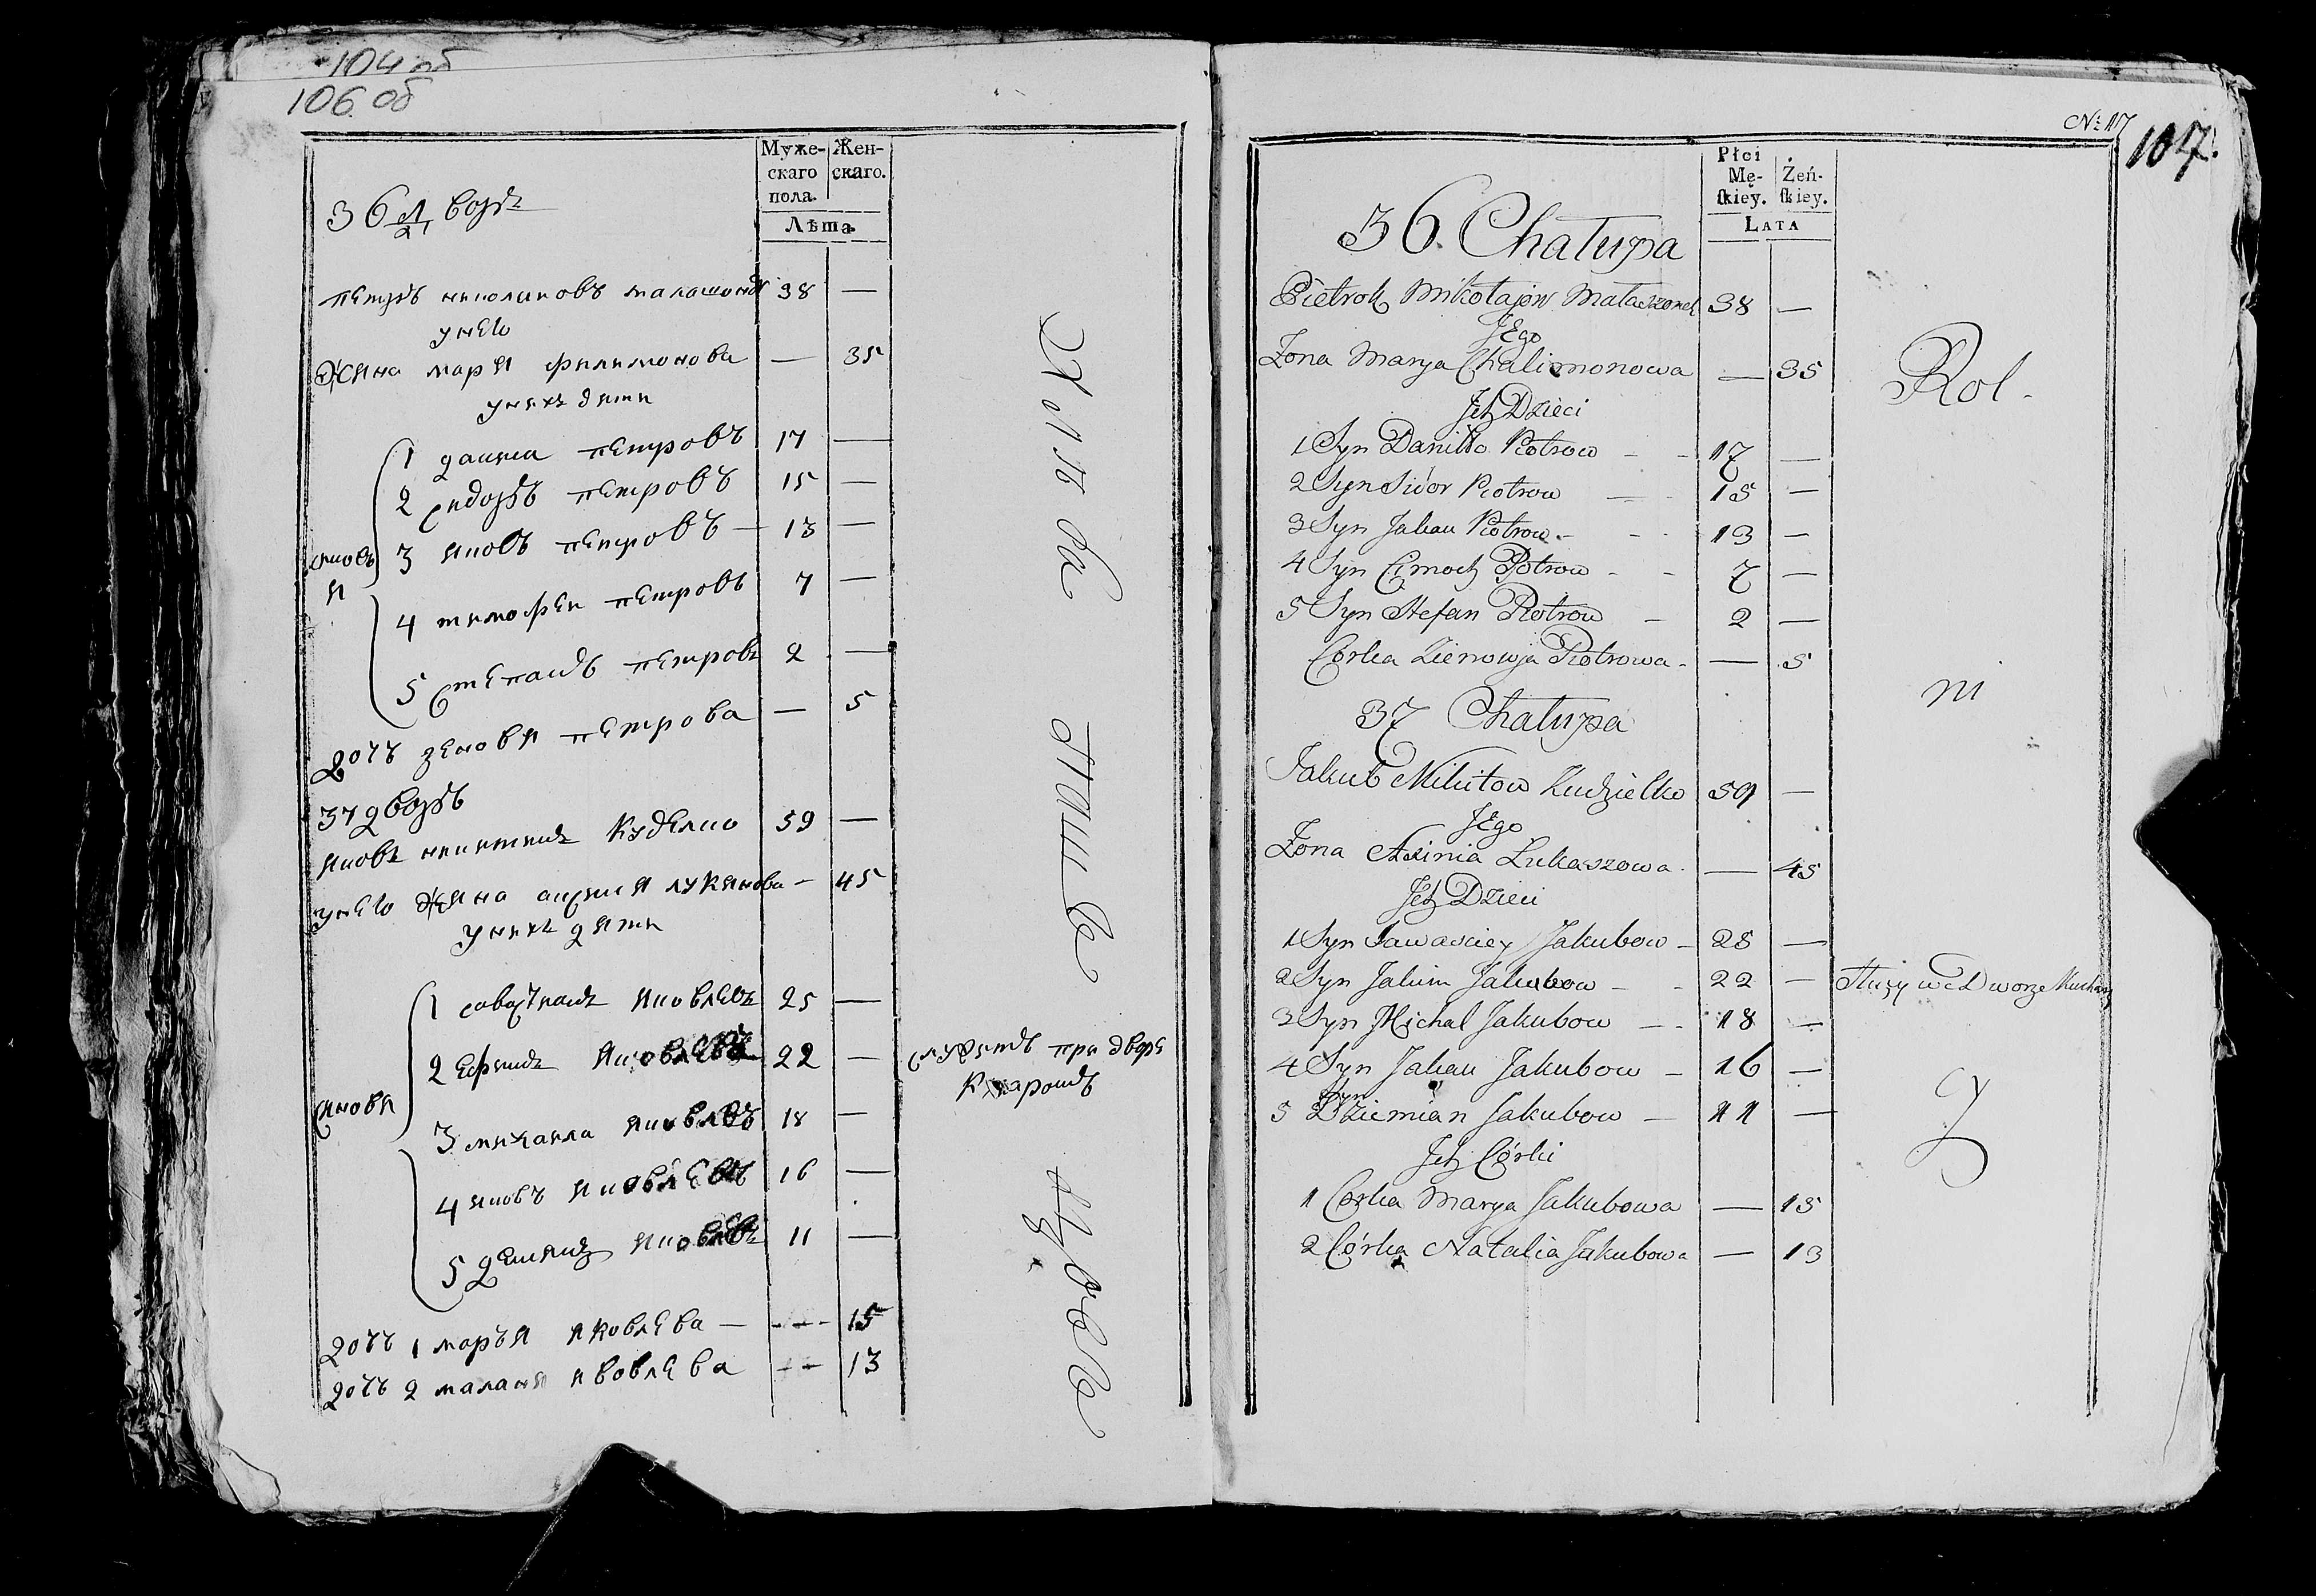 104 об
106 об
Муже-
скаго
пола.
Жен-
скаго.
Лѣта
36 дворъ
петръ николаиовъ малашонокъ 38 —
у нево
жена марѧ филимонова — 35
у нихъ дети
1 данила петровъ 17 —
2 сидоръ петровъ 15 —
сыновѧ
3 яковъ петровъ — 13 —
4 тимофеи петровъ 7 —
5 степанъ петровъ 2 —
дочь зеновя петрова — 5
37 дворъ
яковъ никитинъ куделко 59 —
у нево жена аксиния лукянова — 45
у нихъ дяти
1 савостиянъ яковлевъ 25 —
2 ефимъ яковлевъ 22 — служитъ при дворе
сыновя
3 михаила яковлевъ 18 —
4 яковъ яковлевъ 16 —
5 демянъ яковлевъ 11 —
дочь 1 марья яковлева — 15
дочь 2 маланя яковлева — 13
Хлеба
паше
№ 117
107.
Płci
Mę-
ſkiey.
Żeń-
ſkiey.
LATA
36. Chałupa
Pietrok Mikołajow Małaszonek 38 —
Jego
Żona Marya Chalimonowa — 35
Ich Dzieci
1 Syn Daniło Piotrow - - 17 —
2 Syn Sidor Piotrow — 15 —
3 Syn Jakau Piotrow - - 13 —
4 Syn Cimoch Piotrow - - 7 —
5 Syn Stefan Piotrow — 2 —
Córka Zienowja Piotrowa - — 5
37 Chałupa
Jakub Mikitow Kudzielko 59 —
Jego
Żona Axinia Lukaszowa. — 45
Ich Dzieci
1 Syn Sawasciey Jakubow — 25 —
2 Syn Jakim Jakubow - - 22 — Służy we Dworze
3 Syn Michal Jakubow — 18 —
4 Syn Jakau Jakubow — 16 —
Syn
5 Dziemian Jakubow — 11 —
Ich Córki
1 Corka Marya Jakubowa — 15
2 Córka Natalia Jakubowa — 13
Rol.
ni